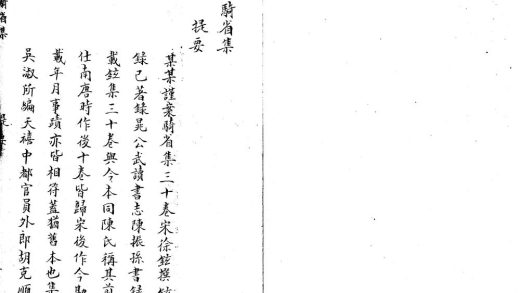 騎省集
提要
某某謹案騎省集三十卷宋徐鉉撰
錄已著錄晁公武讀書志陳振孫書錄
載鉉集三十卷與今本同陳氏稱其前
仕南唐時作後十卷皆歸宋後作今勘
載年月事蹟亦皆相符蓋猶舊本也集
吳淑所編天禧中都官員外郎胡克順
騎省集